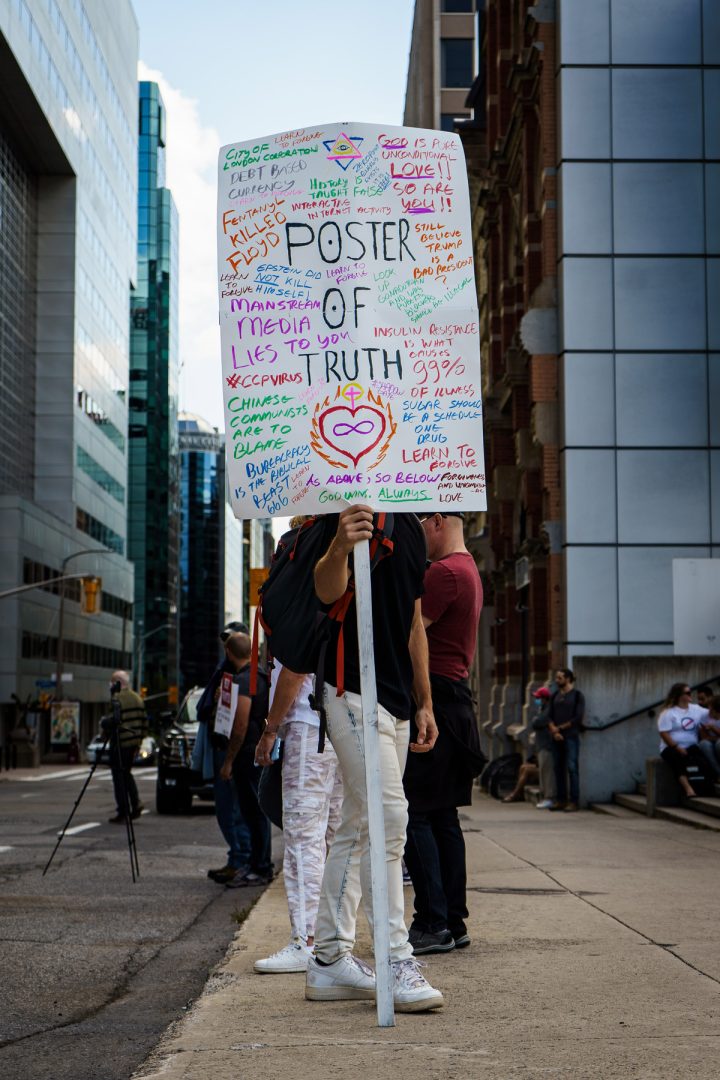 LEARN TO FORGIVE
CITY OF
LONDON CORPORATION
DEBT BASED
CURRENCY
FENTANYL
KILLED
FLOYD
HISTORY IS
TAUGHT FALSE
INTERACTIVE
INTERNET ACTIVITY
GOD IS PURE
UNCONDITIONAL
LOVE!!
SO ARE
YOU!!
POSTER
OF
TRUTH
STILL
BELIEVE
TRUMP
IS A
BAD PRESIDENT
?
LEARN
TO
FORGIVE
EPSTEIN DID
NOT KILL
HIMSELF!
LEARN TO
FORGIVE
MAINSTREAM
MEDIA
LIES TO YOU
#CCPVIRUS
CHINESE
COMMUNISTS
ARE TO
BLAME
BUREAUCRACY
IS THE BIBLICAL
BEAST
666
LOOK
UP
INSULIN RESISTANCE
IS WHAT
CAUSES
99%
OF ILLNESS
SUGAR SHOULD
BE A SCHEDULE
ONE
DRUG
LEARN TO
FORGIVE
AS ABOVE, SO BELOW
GOD WINS. ALWAYS
FORGIVENESS
AND
LOVE